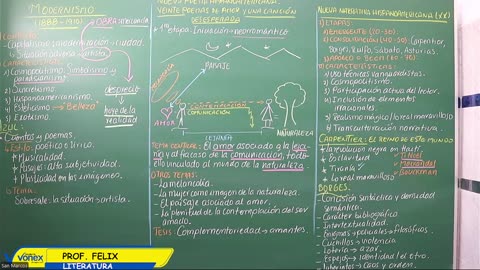 MODERNISMO
(1888-1910)
Contexto:
Capitalismo: modernización - ciudad.
OBRA mercancía
Situación artista
Características:
1) Cosmopolitismo: Simbolismo y parnasianismo
2) Sincretismo
3) Hispanoamericanismo.
4) Esteticismo → "Belleza"
5) Exotismo.
desprecio
fuga de la realidad
AZUL:
Cuentos y poemas.
Estilo: poético o lírico.
Musicalidad.
Paisajes: alta subjetividad.
Plasticidad en las imágenes.
Tema:
Sobresale: la situación artista.
VEINTE POEMAS DE AMOR Y UNA CANCIÓN
DESESPERADA
1era etapa: Iniciación - neorromántico
PAISAJE
AMOR
COMUNICACIÓN
LEJANÍA
NATURALEZA
TEMA CENTRAL: El amor asociado a la lejanía y al fracaso de la comunicación, todo ello vinculado al mundo de la naturaleza.
OTROS TEMAS:
- La melancolía.
- La mujer como imagen de la naturaleza.
- El paisaje asociado al amor.
- La plenitud de la contemplación del ser amado.
TESIS: Complementariedad → amantes.
NUEVA NARRATIVA HISPANOAMERICANA (XX)
1) ETAPAS:
Borges, Rulfo, Sábato, Asturias.
2) CARACTERÍSTICAS:
1. Uso técnicas vanguardistas.
2. Cosmopolitismo.
3. Participación activa del lector.
4. Inclusión de elementos irracionales.
5. Realismo mágico / lo real maravilloso
6. Transculturación narrativa.
CARPENTIER: EL REINO DE ESTE MUNDO
- La revolución negra en Haití.
- Esclavitud
- Tiranía
- Lo real maravilloso
Ti Noel
Mackandal
Bouckman
BORGES.
- Concisión sintáctica y densidad semántica.
- Carácter bibliográfico
- Intertextualidad.
- Enigmas → policiales → filosóficos.
- Cuchillos → violencia
- Lotería → azar.
- Espejos → identidad / el otro
- Laberintos → Caos y orden.
VONEX
San Marcos
PROF. FELIX
LITERATURA